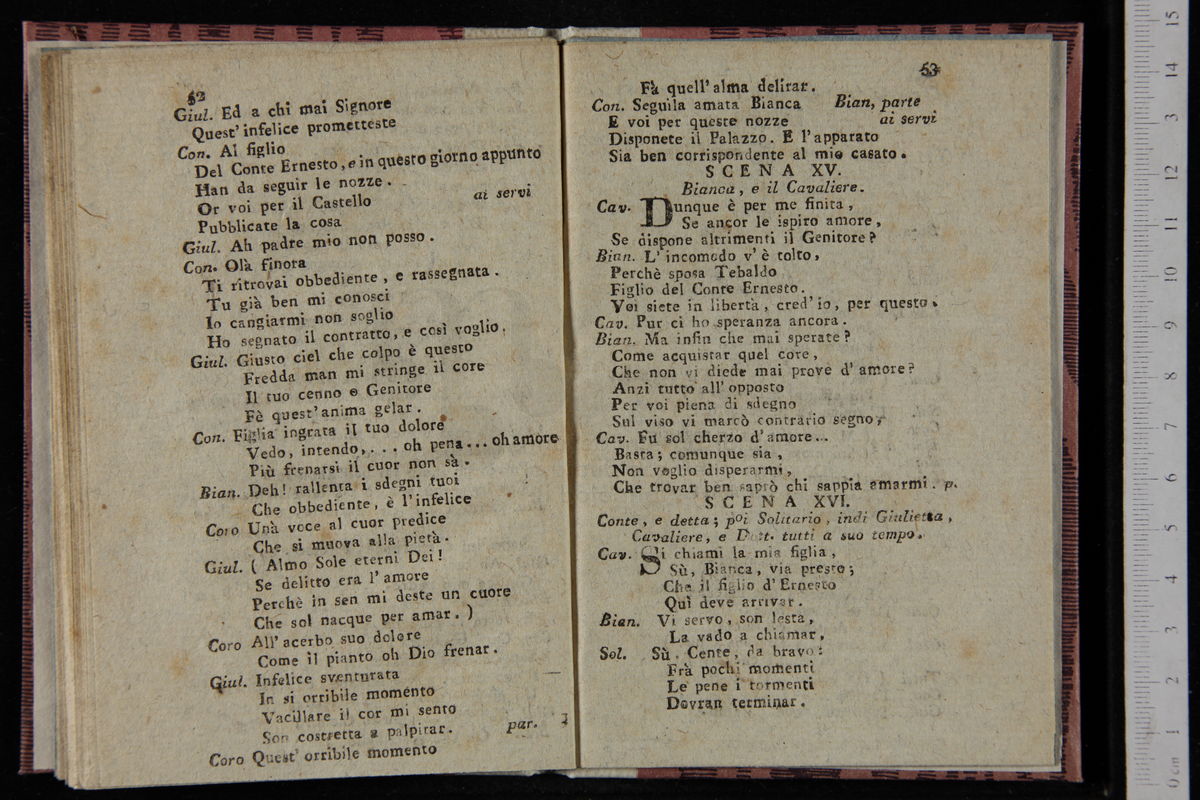 52
Giul. Ed a chi mai Signore
Quest' infelice prometteste
Con. Al figlio
Del Conte Ernesto, e in questo giorno appunto
Han da seguir le nozze.
Or voi per il Castello ai servi
Pubblicate la cosa
Giul. Ah padre mio non posso.
Con. Olà finora
Ti ritrovai obbediente, e rassegnata.
Tu già ben mi conosci
Io cangiarmi non soglio
Ho segnato il contratto, e così voglio.
Giul. Giusto ciel che colpo è questo
Fredda man mi stringe il core
Il tuo cenno o Genitore
Fè quest' anima gelar.
Con. Figlia ingrata il tuo dolore
Vedo, intendo,... oh pena... oh amore
Più frenarsi il cuor non sà.
Bian. Deh! rallenta i sdegni tuoi
Che obbediente, è l'infelice
Coro Unà voce al cuor predice
Che si muova alla pietà.
Giul. ( Almo Sole eterni Dei!
Se delitto era l'amore
Perchè in sen mi deste un cuore
Che sol nacque per amar. )
Coro All' acerbo suo dolore
Come il pianto oh Dio frenar.
Giul. Infelice sventurata
In si orribile momento
Vacillare il cor mi sento
Son costretta a palpirar. par.
Coro Quest' orribile momento
53
Fà quell' alma delirar.
Con. Seguila amata Bianca Bian, parte
E voi per queste nozze ai servi
Disponete il Palazzo. E l'apparato
Sia ben corrispondente al mio casato.
SCENA XV.
Bianca, e il Cavaliere.
Cav. Dunque è per me finita,
Se ancor le ispiro amore,
Se dispone altrimenti il Genitore?
Bian. L' incomodo v' è tolto,
Perchè sposa Tebaldo
Figlio del Conte Ernesto.
Voi siete in libertà, cred' io, per questo.
Cav. Pur ci ho speranza ancora.
Bian. Ma infin che mai sperate?
Come acquistar quel core,
Che non vi diede mai prove d' amore?
Anzi tutto all' opposto
Per voi piena di sdegno
Sul viso vi marcò contrario segno,
Cav. Fu sol cherzo d'amore...
Basta; comunque sia,
Non voglio disperarmi,
Che trovar ben saprò chi sappia amarmi. p.
SCENA XVI.
Conte, e detta; poi Solitario, indi Giulietta,
Cavaliere, e Dott. tutti a suo tempo.
Cav. Si chiami la mia figlia,
Sù, Bianca, via presto;
Che il figlio d' Ernesto
Quì deve arrivar.
Bian. Vi servo, son lesta,
La vado a chiamar,
Sol. Sù, Cente, da bravo:
Frà pochi momenti
Le pene i tormenti
Dovran terminar.
15
14
13
12
11
10
9
8
7
6
5
4
3
2
1
0 cm